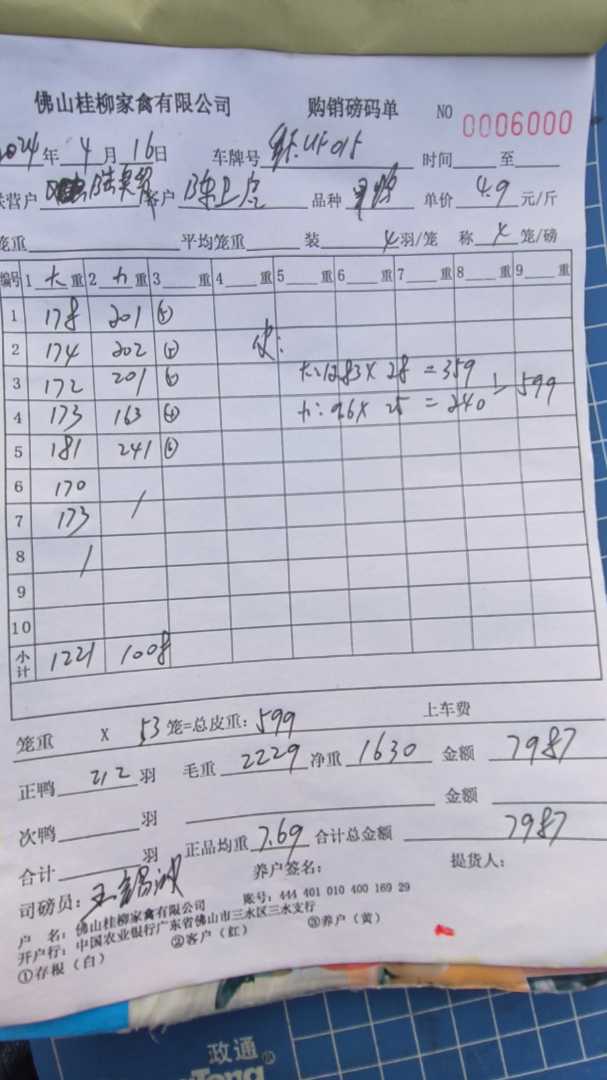 佛山桂柳家禽有限公司 购销磅码单 NO 0006000
2024年 4月 16日 车牌号 时间 至
联营户 客户 品种 单价 4.9 元/斤
笼重 平均笼重 装 4 羽/笼 称 笼/磅
编号 1 大 重 2 小 重 3 重 4 重 5 重 6 重 7 重 8 重 9 重
1 178 201 ⑤
2 174 202 ⑤ 皮:
3 172 201 ⑤ 大:12.83 X 28 = 359
4 173 163 ④ 小:9.6 X 25 = 240 > 599
5 181 241 ⑥
6 170
7 173
8
9
10
小计 1221 1008
笼重 X 53 笼=总皮重: 599 上车费
正鸭 212 羽 毛重 2229 净重 1630 金额 7987
次鸭 羽 金额
合计 羽 正品均重 7.69 合计总金额 7987
司磅员: 养户签名: 提货人:
户 名: 佛山桂柳家禽有限公司 账号: 444 401 010 400 169 29
开户行: 中国农业银行广东省佛山市三水区三水支行
①存根(白) ②客户(红) ③养户(黄)
政通